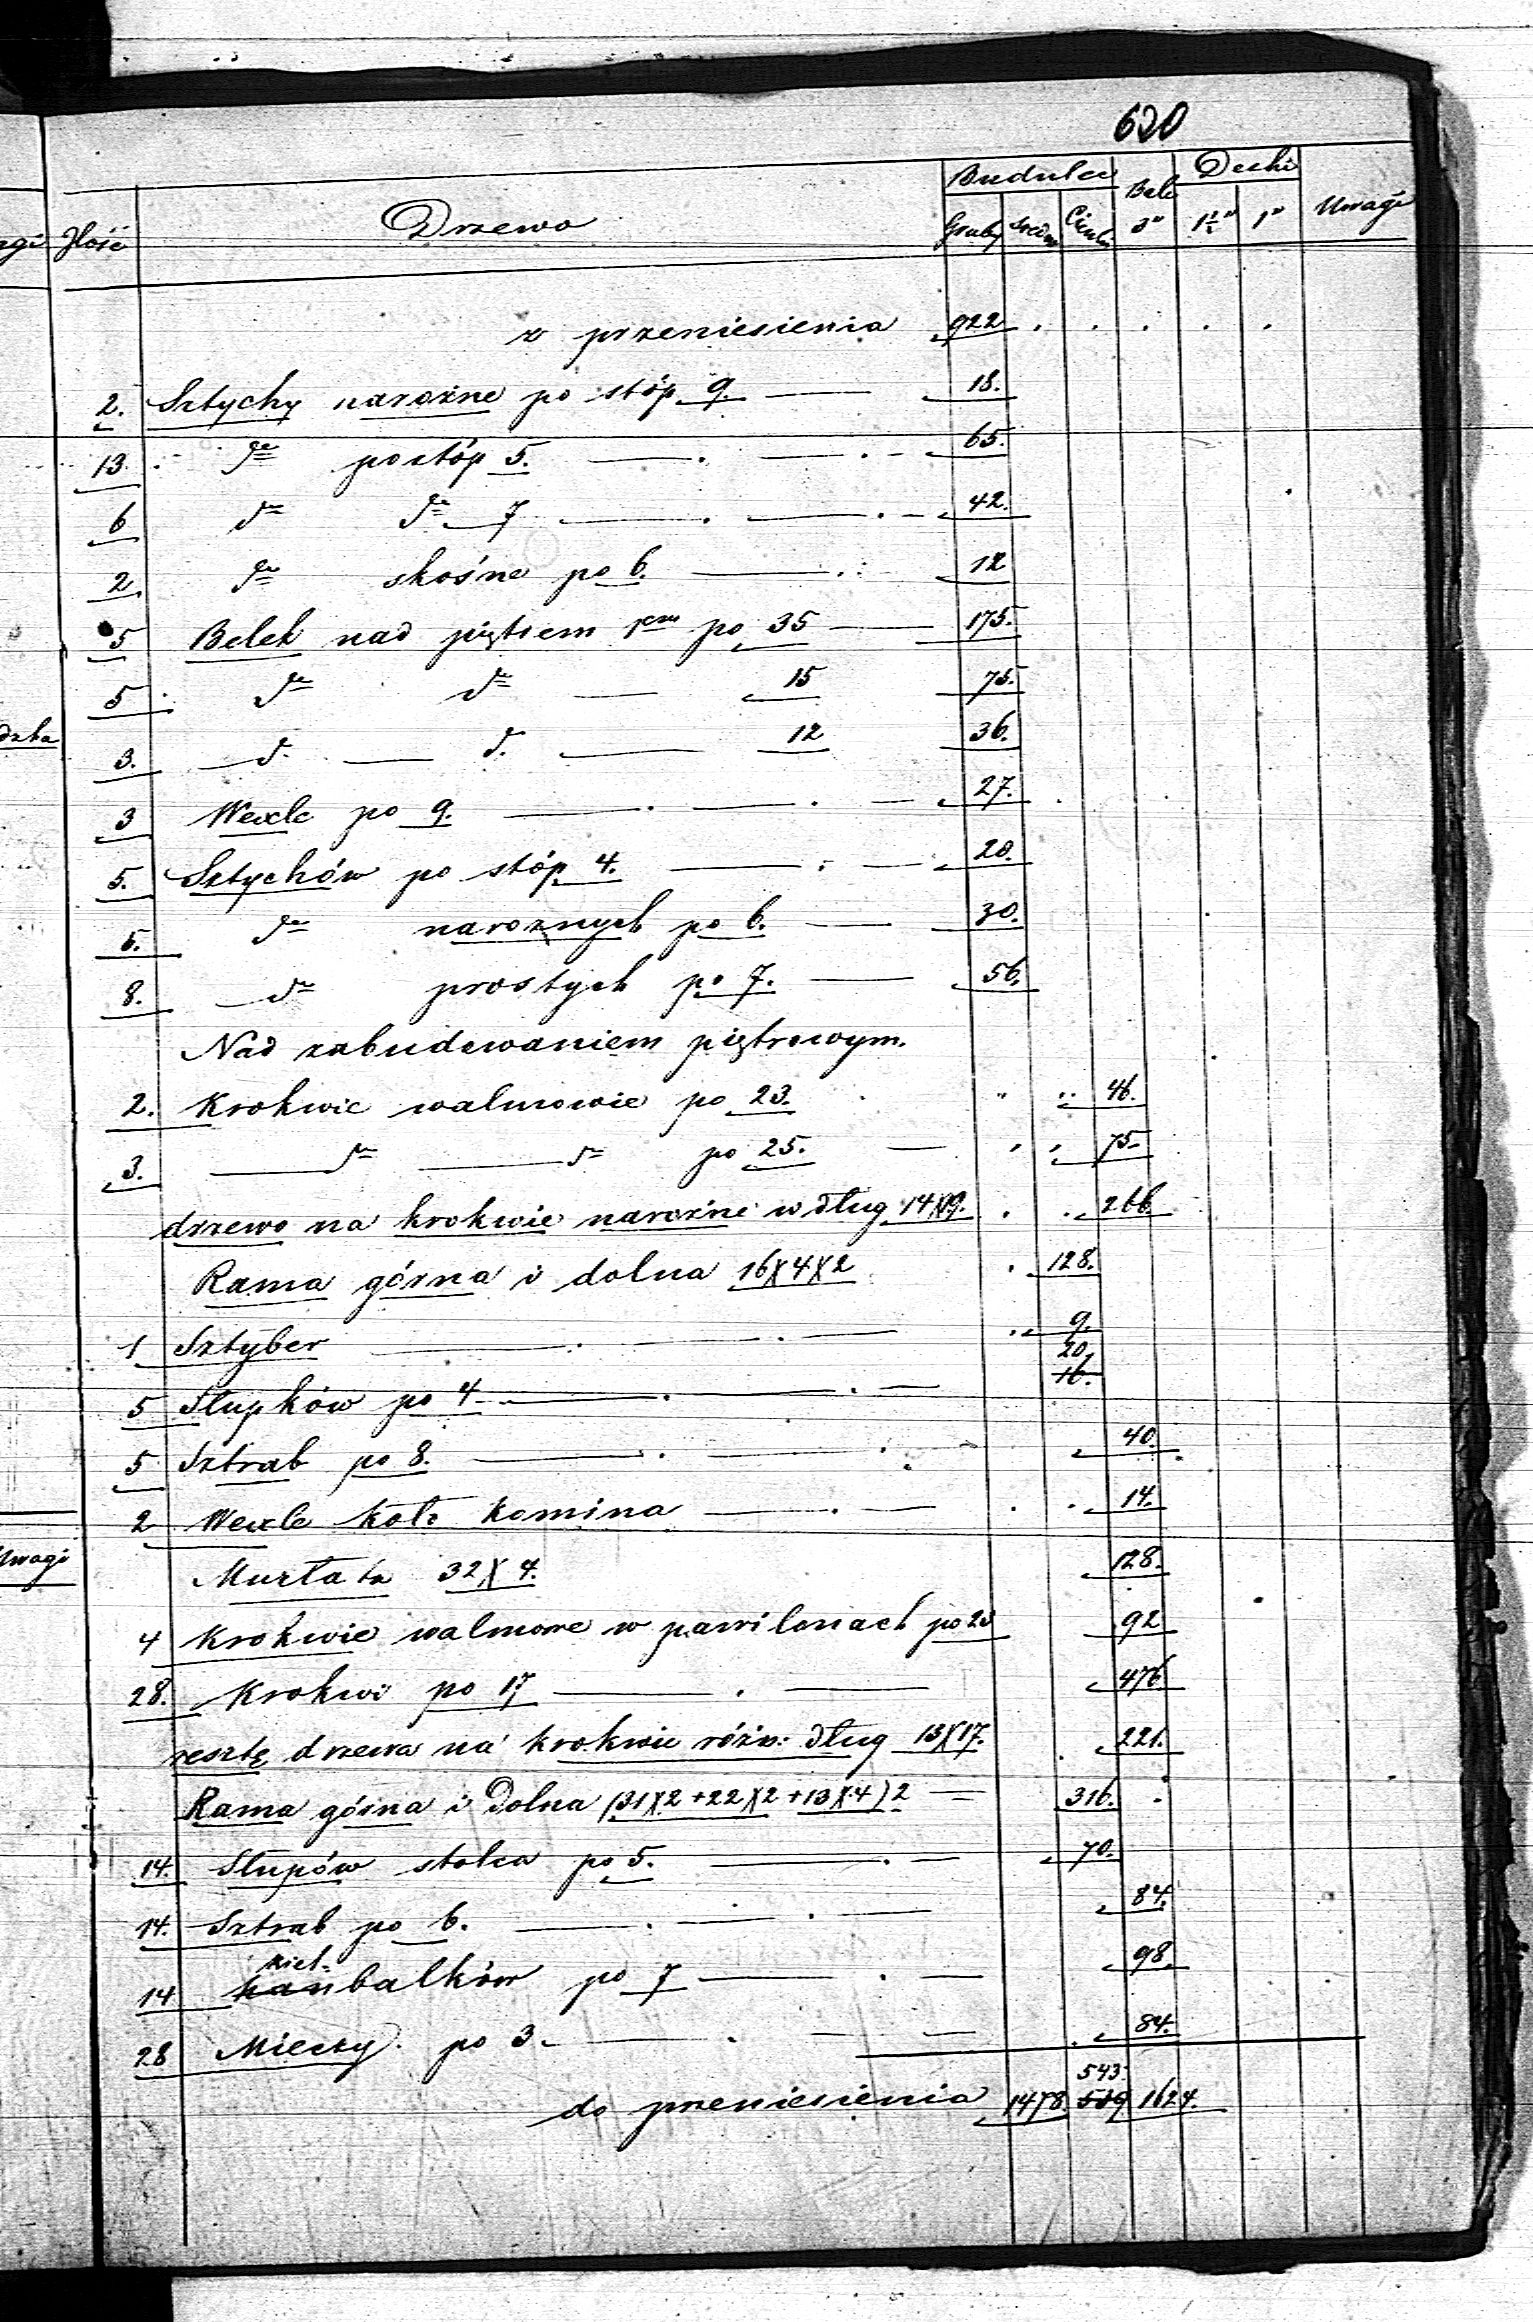 620
Ilość Drzewo Budulec Bale Deski Uwagi
Gruby Średni Cienki 3" 1½" 1"
z przeniesienia 922
2. Sztychy narożne po stóp 9. 18.
13. dto po stóp 5. 65.
6 dto dto 7 42.
2. dto skośne po 6. 12
5 Belek nad piętrem 1em po 35 175.
5 dto dto 15 75.
3. d. d. 12 36.
3 Wexle po 9. 27.
5. Sztychów po stóp 4. 20.
5. dto narożnych po 6. 30.
8. dto prostych po 7. 56.
Nad zabudowaniem piętrowym.
2. Krokwie walmowie po 23. 46.
3. dto dto po 25. 75.
drzewo na krokwie narożne w dług 14X19. 266.
Rama górna i dolna 16X4X2 128.
1 Sztyber 9.
5 Słupków po 4 20. 16.
5 Sztrab po 8. 40.
2 Wexle koło komina 14.
Murłata 32X4. 128.
4 Krokwie walmowe w pawilonach po 23 92
28. Krokwi po 17 476.
resztę drzewa na krokwie różn: dług 13X17. 221.
Rama górna i Dolna (31X2+22X2+13X4)2 = 316.
14. Słupów stolca po 5. 70.
14. Sztrab po 6. 84.
14 hanbalków po 7 98.
28 Mieczy po 3. 84.
do przeniesienia 1478. 543. 539 1624.
Uwagi